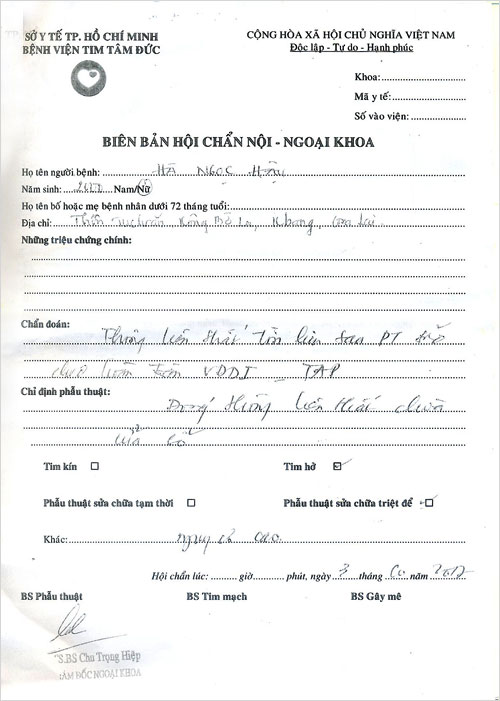 SỞ Y TẾ TP. HỒ CHÍ MINH
BỆNH VIỆN TIM TÂM ĐỨC
CỘNG HÒA XÃ HỘI CHỦ NGHĨA VIỆT NAM
Độc lập - Tự do - Hạnh phúc
Khoa:
Mã y tế:
Số vào viện:
BIÊN BẢN HỘI CHẨN NỘI - NGOẠI KHOA
Họ tên người bệnh: HÀ NGỌC
Năm sinh: Nam/Nữ
Họ tên bố hoặc mẹ bệnh nhân dưới 72 tháng tuổi:
Địa chỉ:
Những triệu chứng chính:
Chẩn đoán: Thông liên thất tồn lưu sau PT
VDDI _ TAP
Chỉ định phẫu thuật: Đóng thông liên thất
Tim kín
Tim hở
Phẫu thuật sửa chữa tạm thời
Phẫu thuật sửa chữa triệt để
Khác: nguy cơ cao.
Hội chẩn lúc: giờ phút, ngày 3 tháng năm 2012
BS Phẫu thuật
BS Tim mạch
BS Gây mê
S.BS Chu Trọng Hiệp
ÁM ĐỐC NGOẠI KHOA